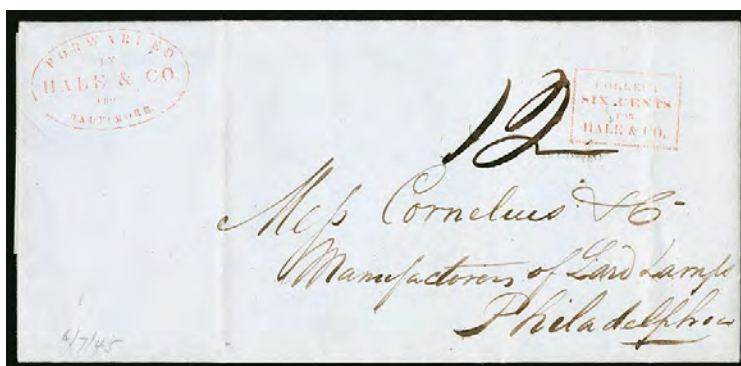 FORWARDED
BY
HALE & CO.
BALTIMORE
COLLECT
SIX CENTS
FOR
HALE & CO.
12
Mess Cornelius & Co
Manufacturers of Lard Lamps
Philadelphia
6/7/45